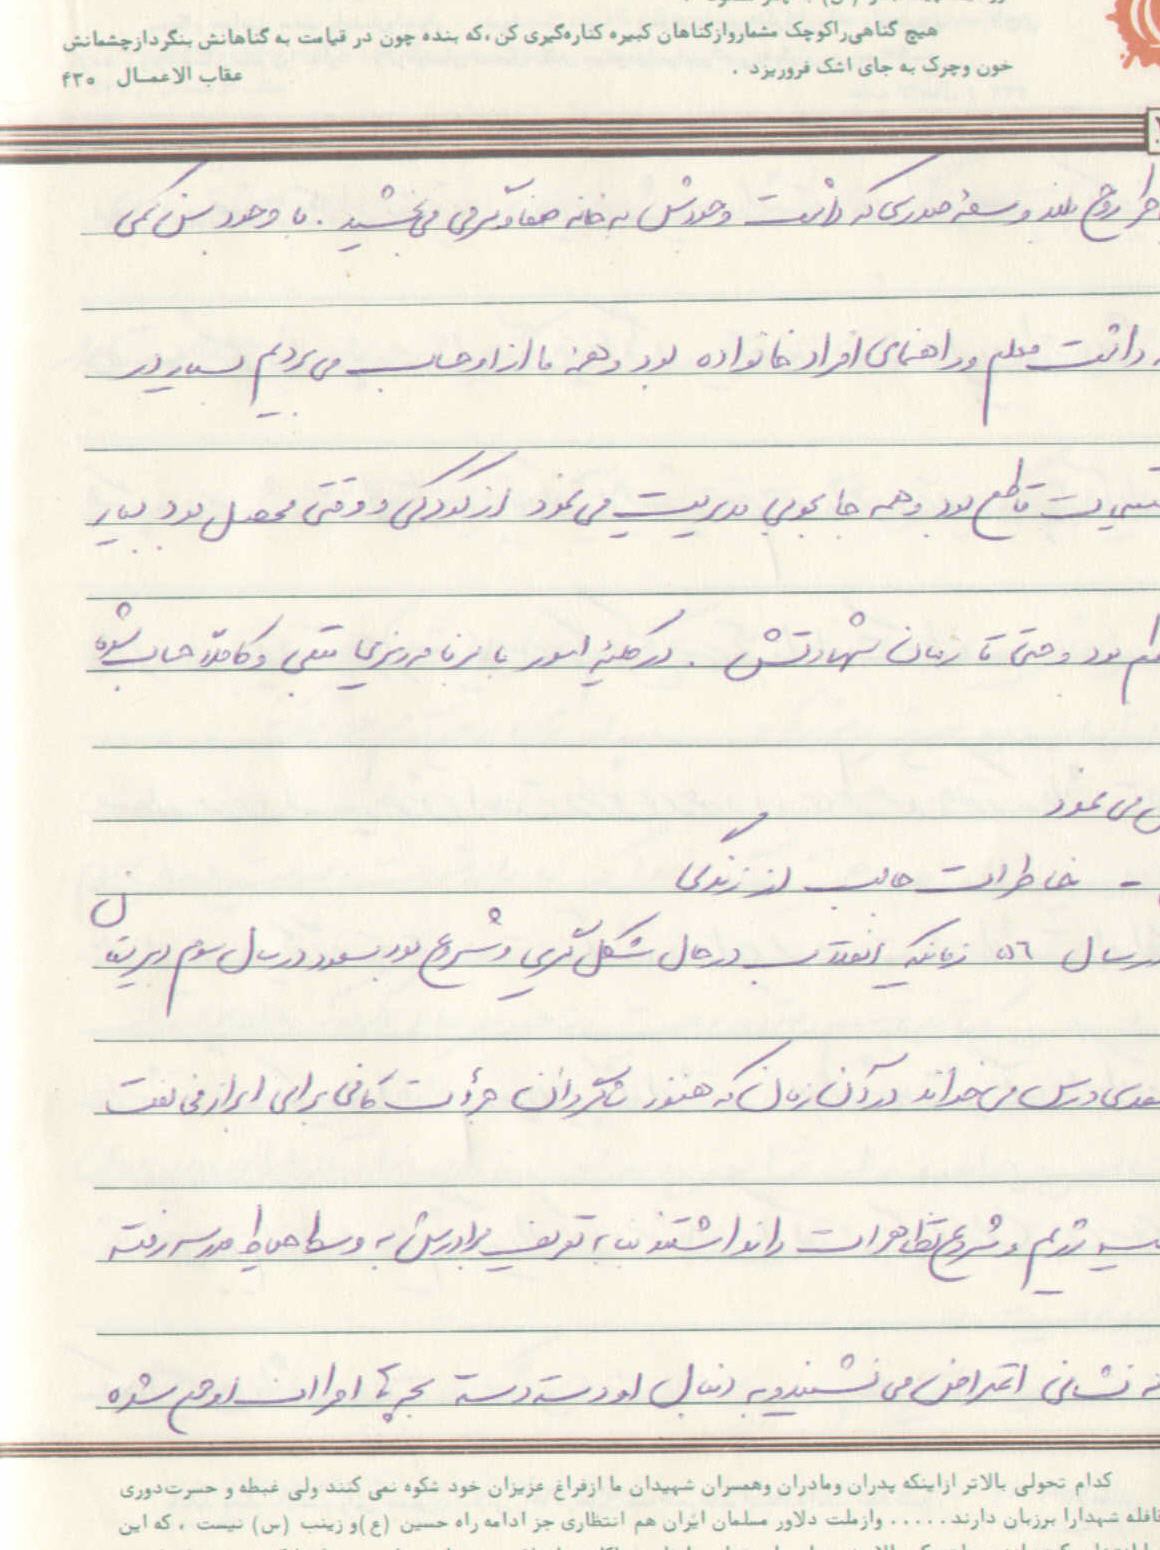 هیچ گناهی راکوچک مشماروازگناهان کبیره کناره‌گیری کن ،که بنده چون در قیامت به گناهانش بنگردازچشمانش
خون وچرک به جای اشک فروریزد .
عقاب الاعمال ۴۳۰
روح بلند و سعهٔ صدری که داشت وجودش به خانه صفا و گرمی می‌بخشید . با وجود سن کمی
داشت معلم و راهنمای افراد خانواده بود و همهٔ ما از او حساب می بردیم بسیار در
قاطع بود و همه جا بخوبی مدیریت می نمود از کودکی و وقتی محصل بود بسیار
بود و حتی تا زمان شهادتش . در کلیهٔ امور با برنامه‌ریزی و کاملاً حساب شده
می نمود
- خاطرات جالب از زندگی
سال ۵۶ زمانیکه انقلاب در حال شکل گیری و شروع بود مسعود در سال سوم دبیرستان
درس می خواند در آن زمان که هنوز شاگردان جرأت کافی برای ابراز مخالفت
رژیم و شروع تظاهرات را نداشتند بنا به تعریف برادرش به وسط حیاط مدرسه رفته
نشانی اعتراض می نشیند و به دنبال او دسته دسته بچه ها اطراف او جمع شده
کدام تحولی بالاتر ازاینکه پدران ومادران وهمسران شهیدان ما ازفراغ عزیزان خود شکوه نمی کنند ولی غبطه و حسرت‌دوری
قافله شهدارا برزبان دارند..... وازملت دلاور مسلمان ایران هم انتظاری جز ادامه راه حسین (ع)و زینب (س) نیست ، که این